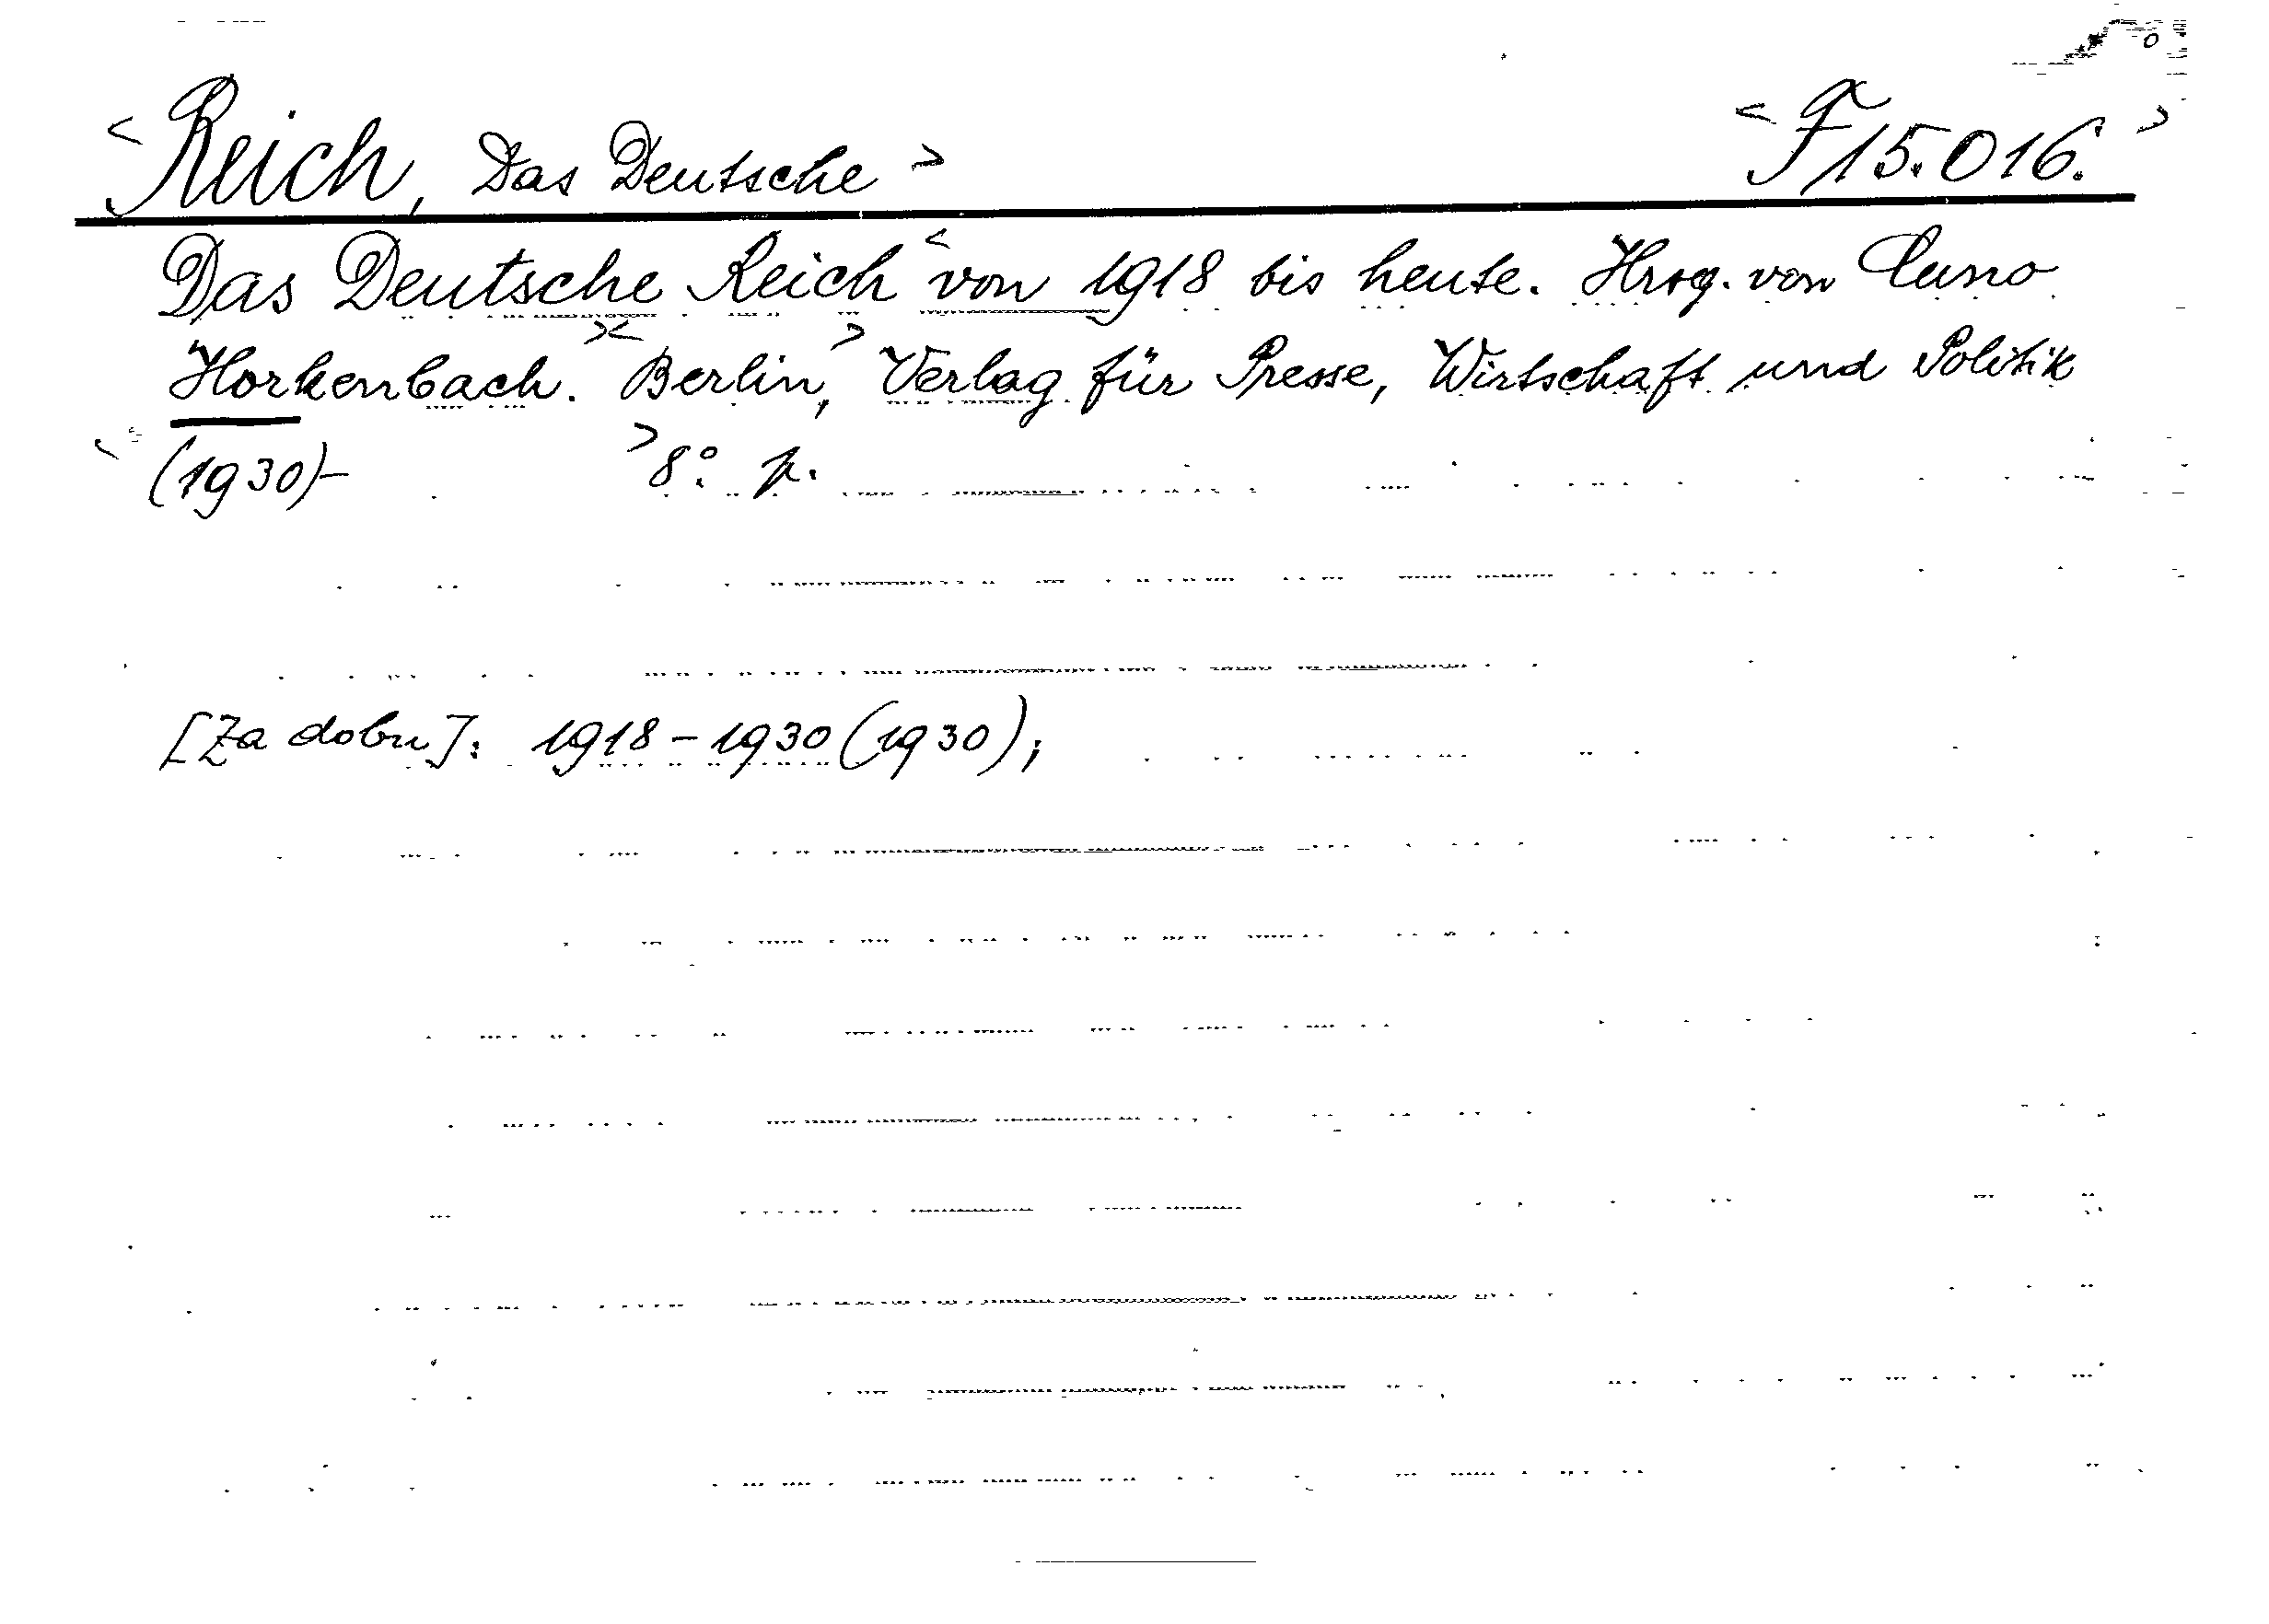 <Reich, Das Deutsche> <F 15.016.>
Das Deutsche Reich <von 1918 bis heute. Hrsg. von Cuno
Horkenbach. >< Berlin,> Verlag für Presse, Wirtschaft und Politik
<(1930)- >8°. p.
[Za dobu]: 1918-1930 (1930);